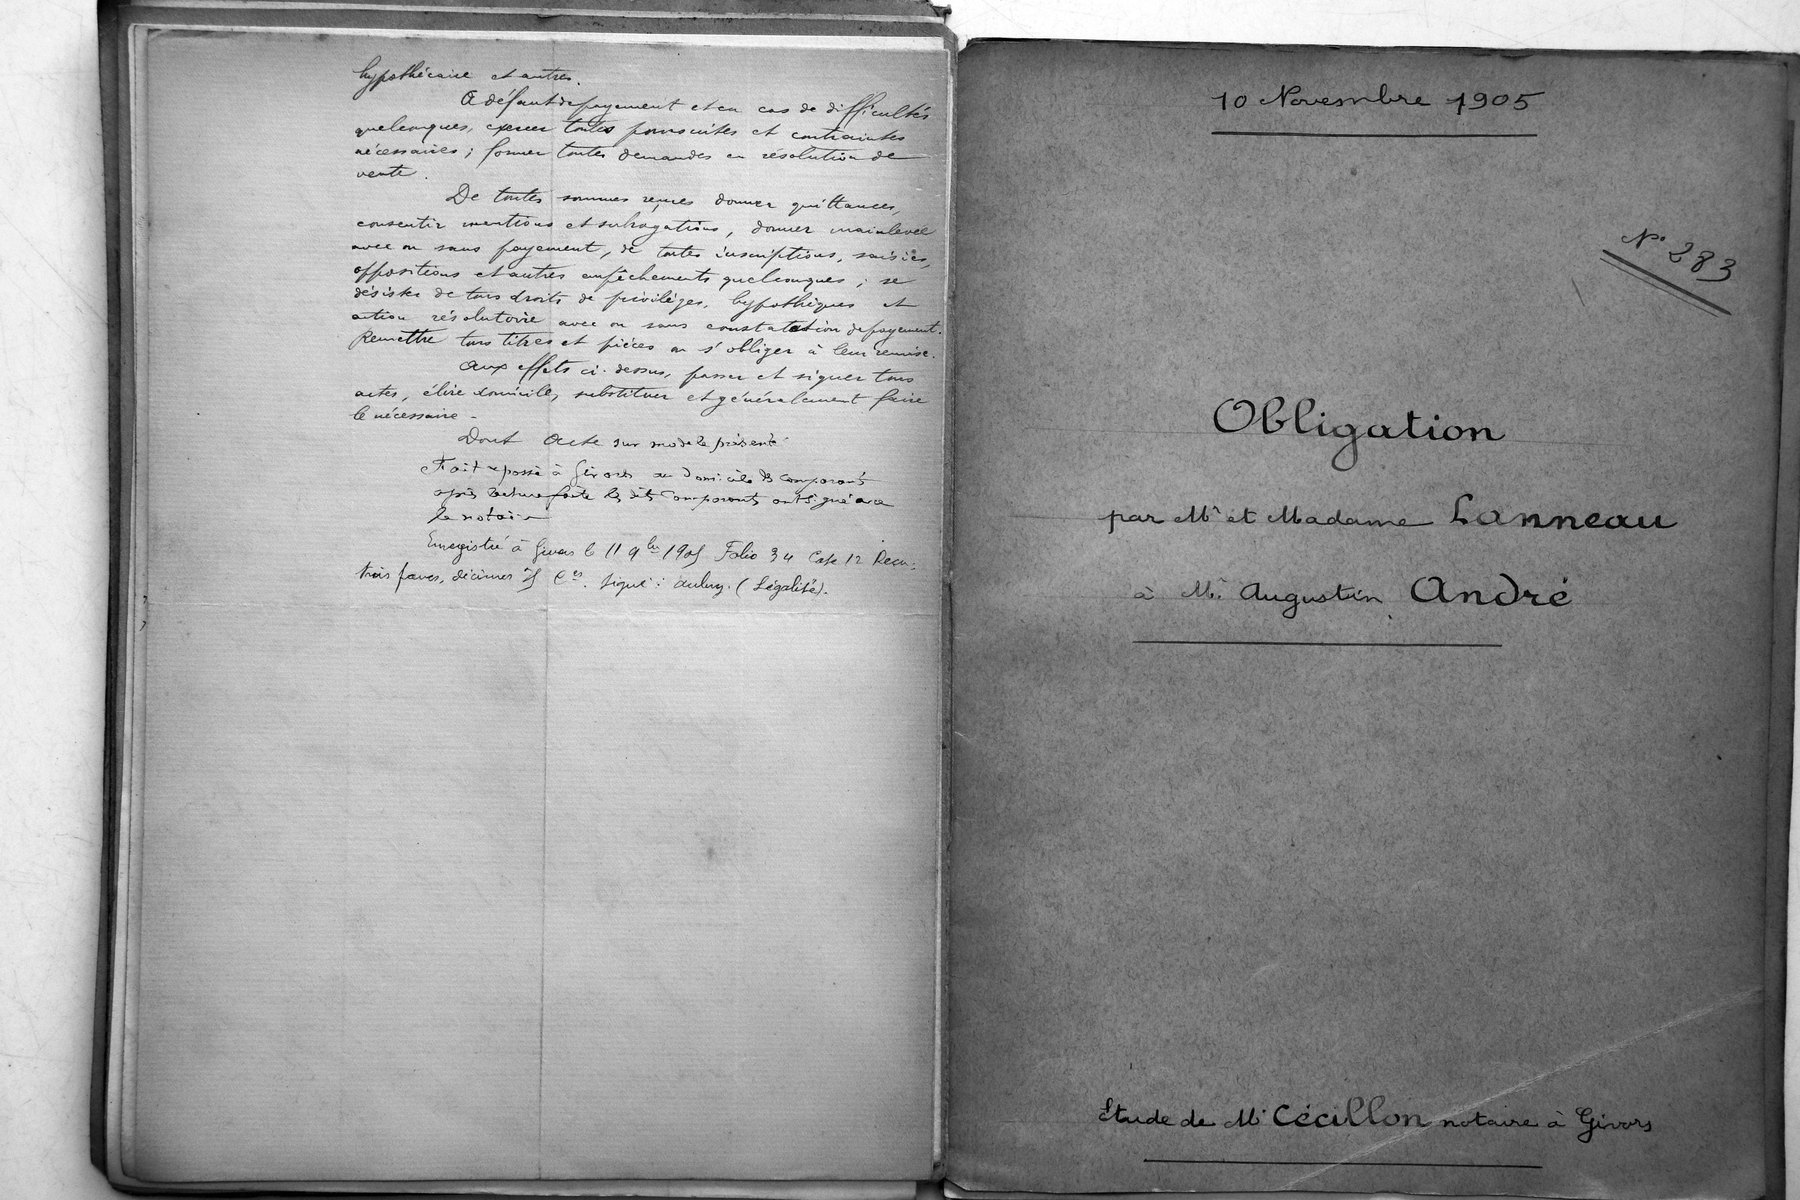 hypothécaire et autres.
A défaut de payement et en cas de difficultés
quelconques, exercer toutes poursuites et contraintes
nécessaires ; former toutes demandes en résolution de
vente.
De toutes sommes reçues donner quittances,
consentir mentions et subrogations, donner mainlevée
avec ou sans payement, de toutes inscriptions, saisies,
oppositions et autres empêchements quelconques ; se
désister de tous droits de privilèges, hypothèques et
action résolutoire avec ou sans constatation de payement.
Remettre tous titres et pièces ou s'obliger à leur remise.
Aux effets ci-dessus, passer et signer tous
actes, élire domicile, substituer et généralement faire
le nécessaire -
Dont Acte sur modèle présenté
Fait & passé à Givors au domicile des comparants
après lecture faite les dits comparants ont signé avec
le notaire
Enregistré à Givors le 11 9bre 1905 Folio 34 Case 12 Reçu :
trois francs, décimes 75 ces. signé : (Légalité).
10 Novembre 1905
N° 283
Obligation
par Mr et Madame Lanneau
à Mr Augustin André
Etude de Me Cécillon notaire à Givors